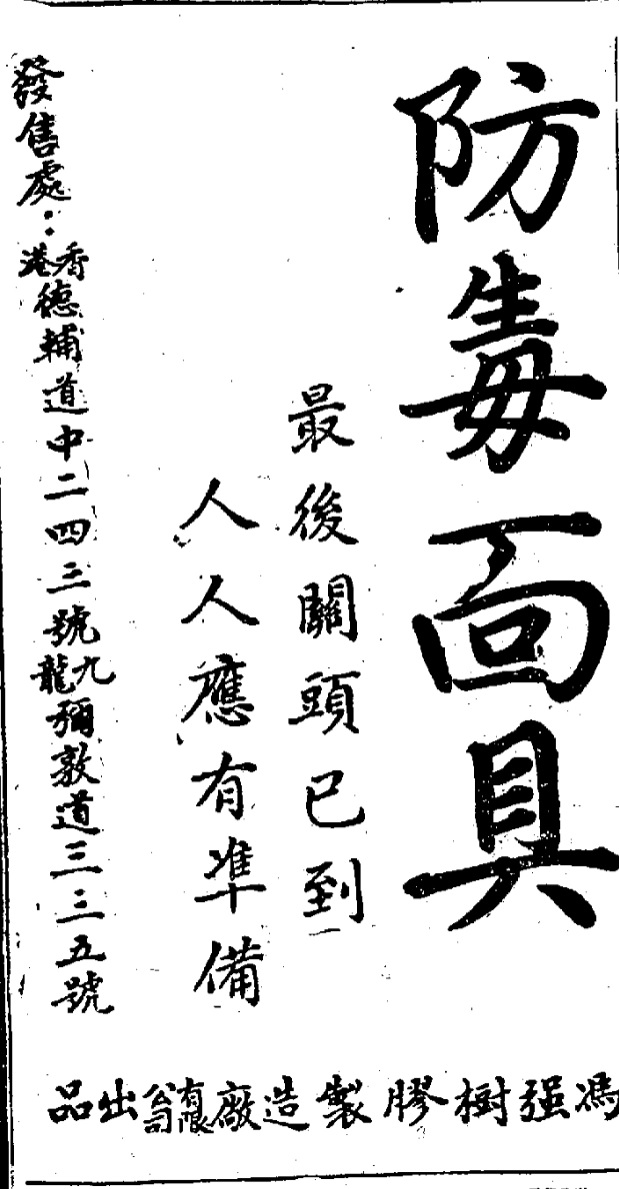 防毒面具
最後關頭已到
人人應有準備
發售處：香港德輔道中二四三號九龍彌敦道三三五號
馮强樹膠製造廠有限公司出品